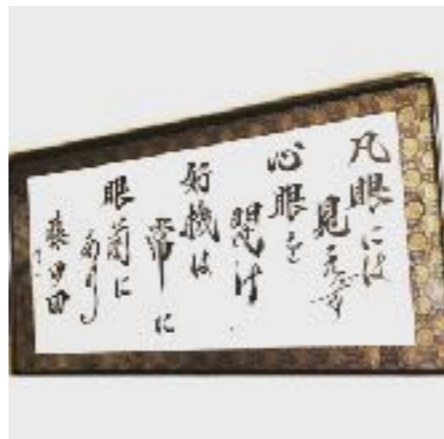 凡眼には
見えず
心眼を
開け
好機は
常に
眼前に
あり